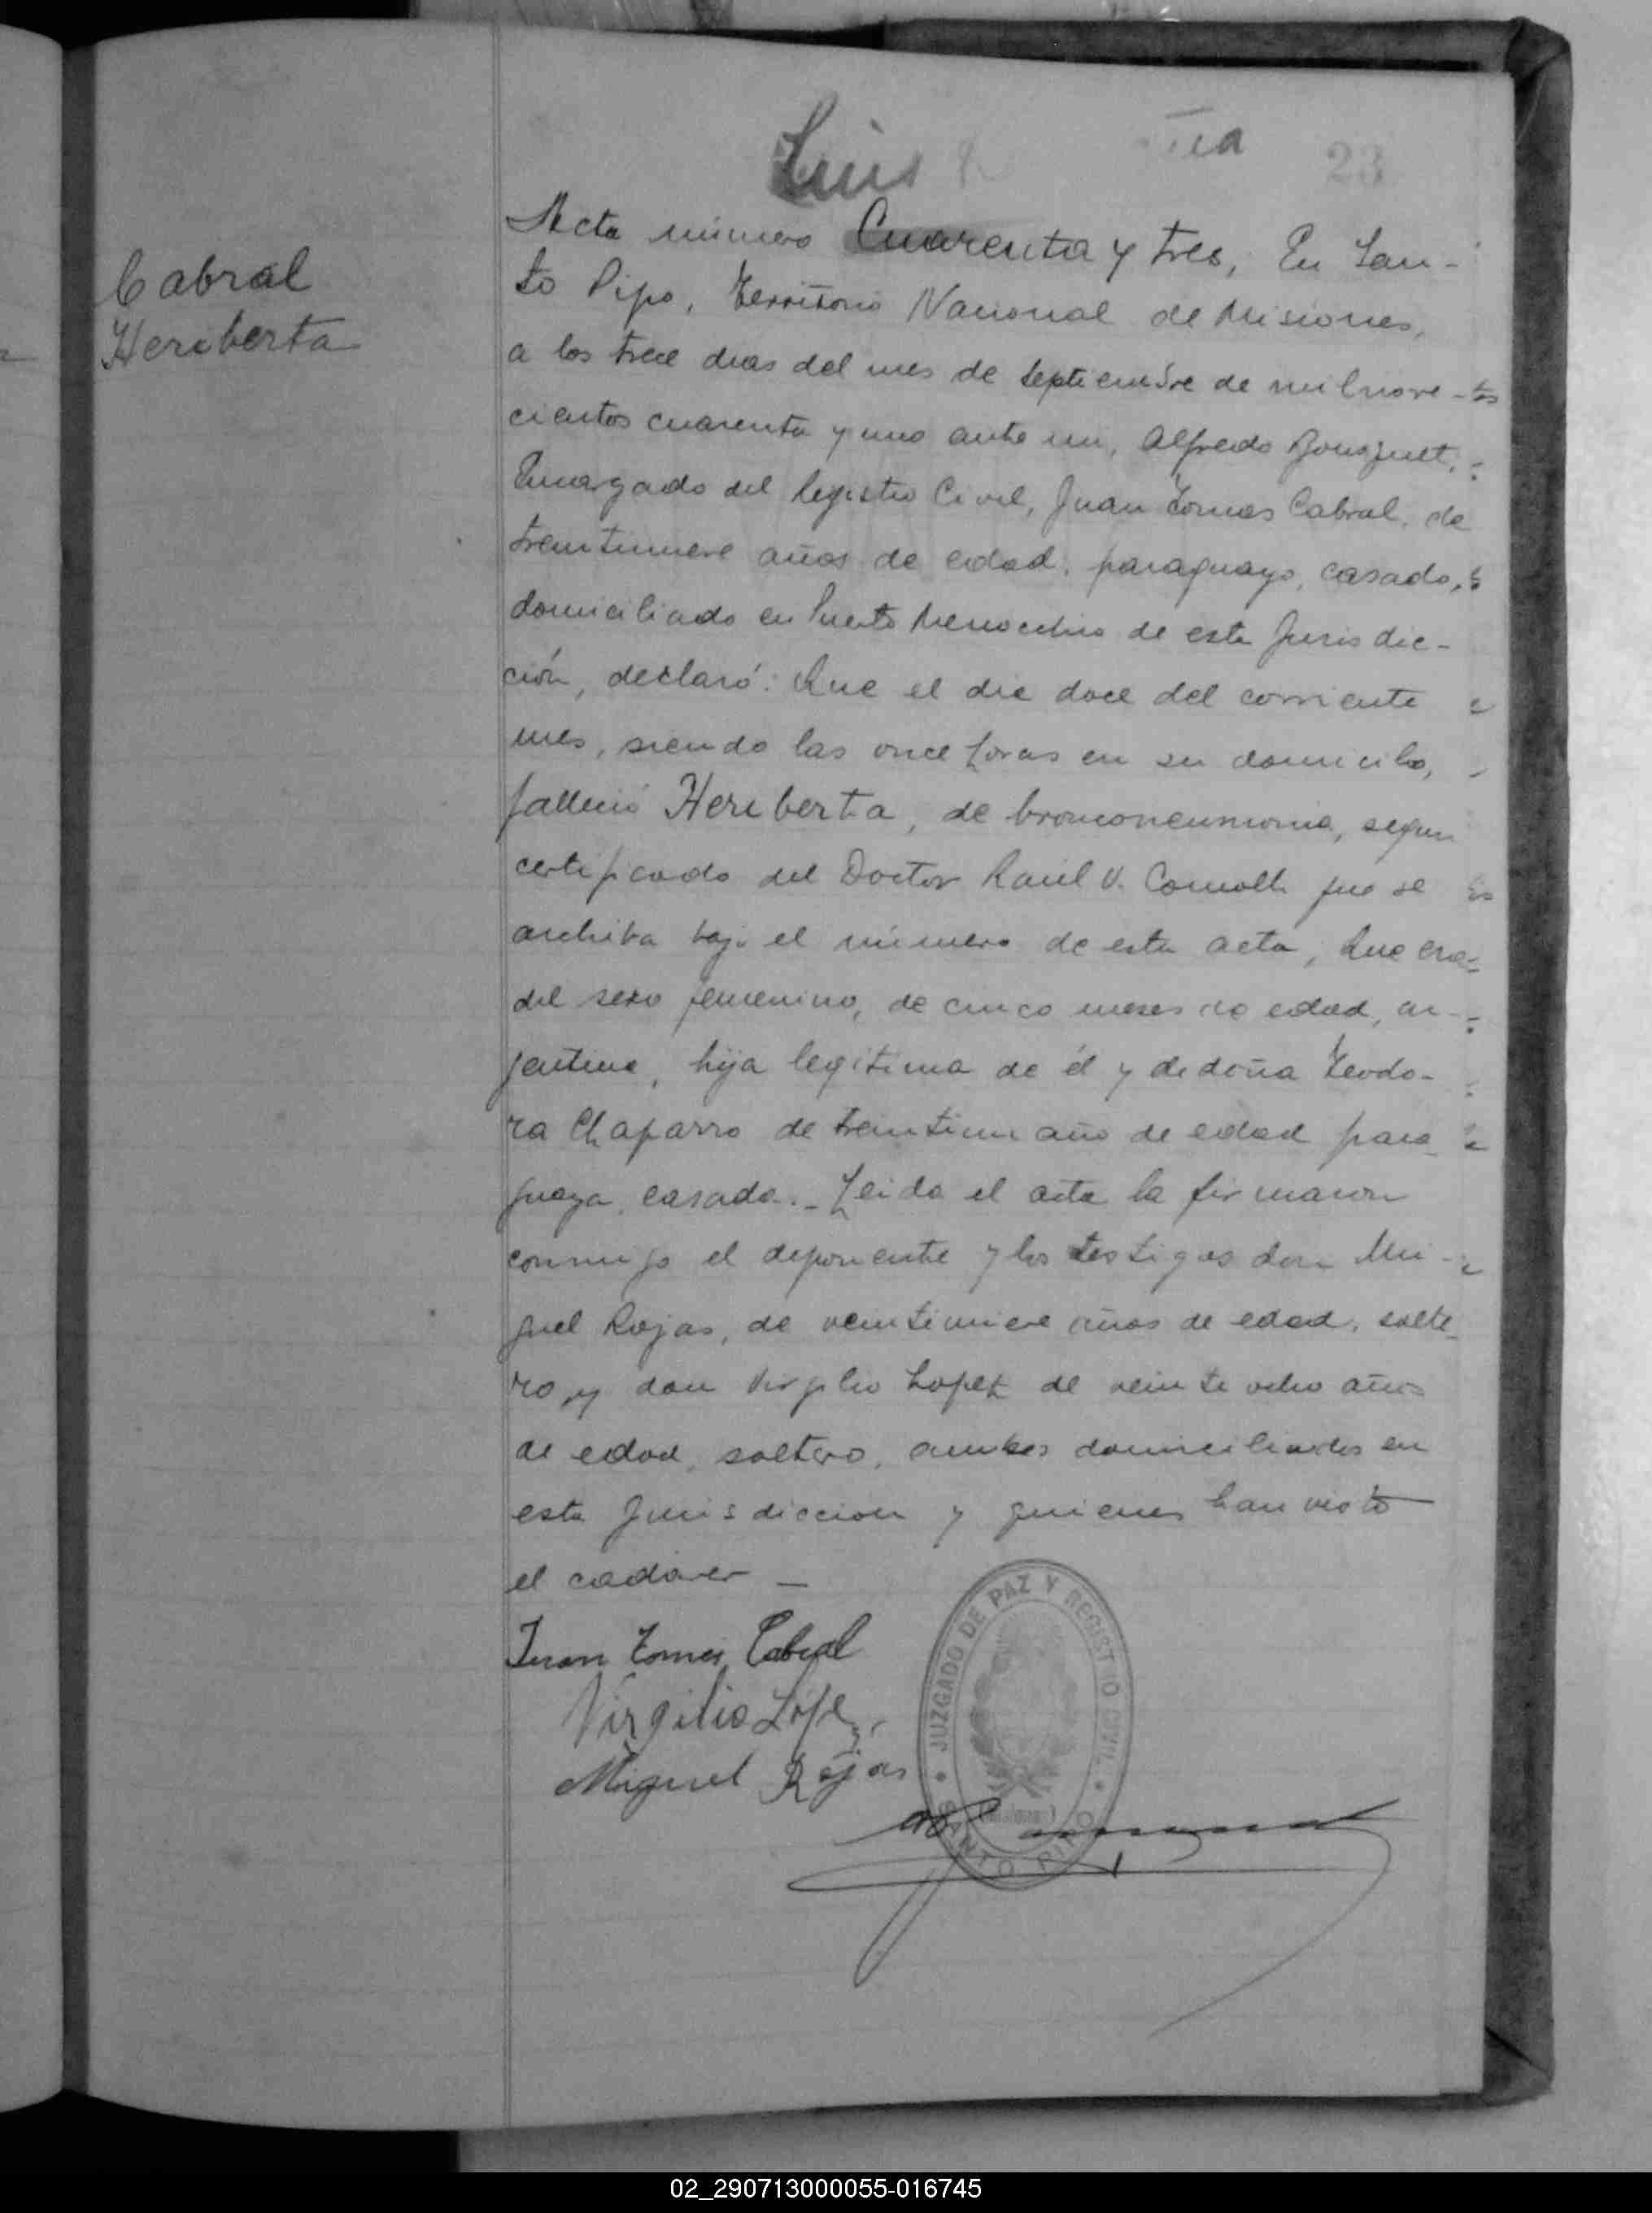 Luis
23
Cabral
Heriberta
Acta número Cuarenta y tres, En San-
to Pipo, Territorio Nacional de Misiones,
a los trece dias del mes de Septiembre de mil nove-
cientos cuarenta y uno ante mi, Alfredo Bousquet,
Encargado del Registro Civil, Juan Tomas Cabral, de
treintinueve años de edad, paraguayo, casado,
domiciliado en Puerto Menocchio de esta Jurisdic-
ción, declaró: Que el dia doce del corriente
mes, siendo las once horas en su domicilio,
falleció Heriberta, de bronconeumonia, segun
certificado del Doctor Raúl V. Comolli que se
archiva bajo el número de esta acta, Que era
del sexo femenino, de cinco meses de edad, ar-
gentina, hija legitima de él y de doña Teodo-
ra Chaparro de treintiun año de edad para-
guaya, casada._ Leida el acta la firmaron
conmigo el deponente y los testigos don Mi-
guel Rojas, de veintinueve años de edad, solte-
ro, y don Virgilio Lopez de veinte ocho años
de edad, soltero, ambos domiciliados en
esta Jurisdiccion y quienes han visto
el cadaver _
Juan Tomas Cabral
Virgilio Lopez
Miguel Rojas
JUZGADO DE PAZ Y REGISTRO CIVIL
SANTO PIPO
02_290713000055-016745